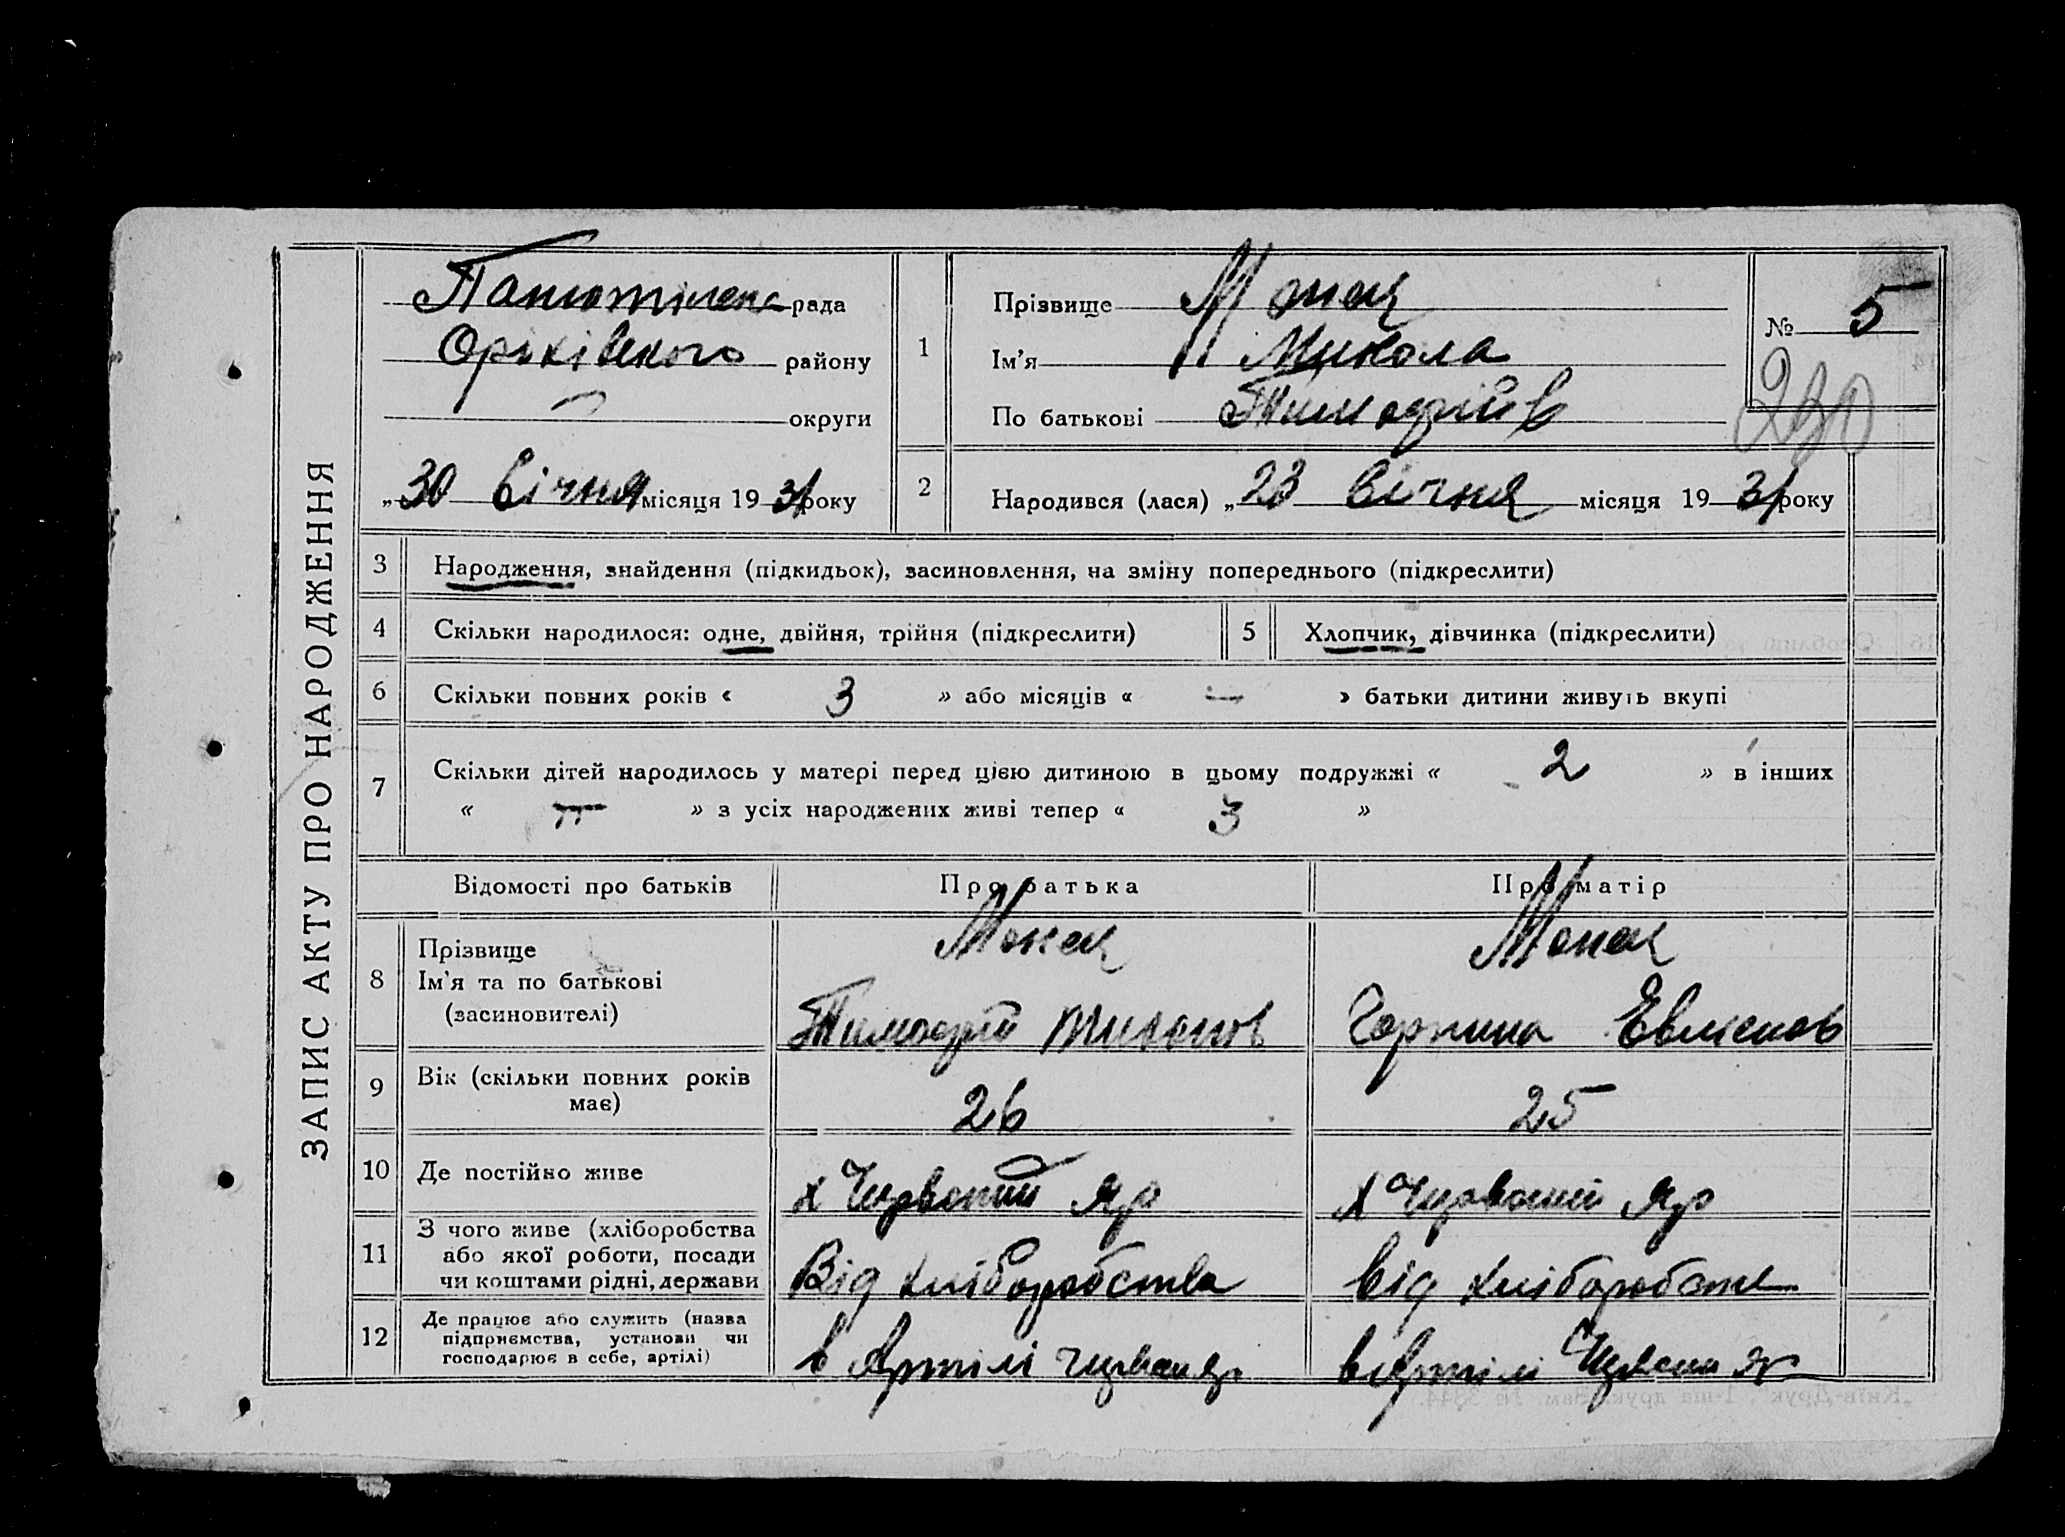 ЗАПИС АКТУ ПРО НАРОДЖЕННЯ
рада
Оріхівського району
округи
„30 Січня місяця 1931 року
1
Прізвище
Ім'я Микола
По батькові Тимофійів
№ 5
230
2
Народився (лася) „23 Січня місяця 1931 року
3 Народження, знайдення (підкидьок), засиновлення, на зміну попереднього (підкреслити)
4 Скільки народилося: одне, двійня, трійня (підкреслити)
5 Хлопчик, дівчинка (підкреслити)
6 Скільки повних років « 3 » або місяців « — » батьки дитини живуть вкупі
7 Скільки дітей народилось у матері перед цією дитиною в цьому подружжі « 2 » в інших
« — » з усіх народжених живі тепер « 3 »
Відомості про батьків Про батька Про матір
8 Прізвище
Ім'я та по батькові
(засиновителі)
Тимофій Тихонов
Горпина
9 Вік (скільки повних років
має)
26 25
10 Де постійно живе х Червоний Яр х Червоний Яр
11 З чого живе (хліборобства
або якої роботи, посади
чи коштами рідні, держави
Від хліборобства від хліборобств
12 Де працює або служить (назва
підприємства, установи чи
господарює в себе, артілі)
в Артілі в Артілі